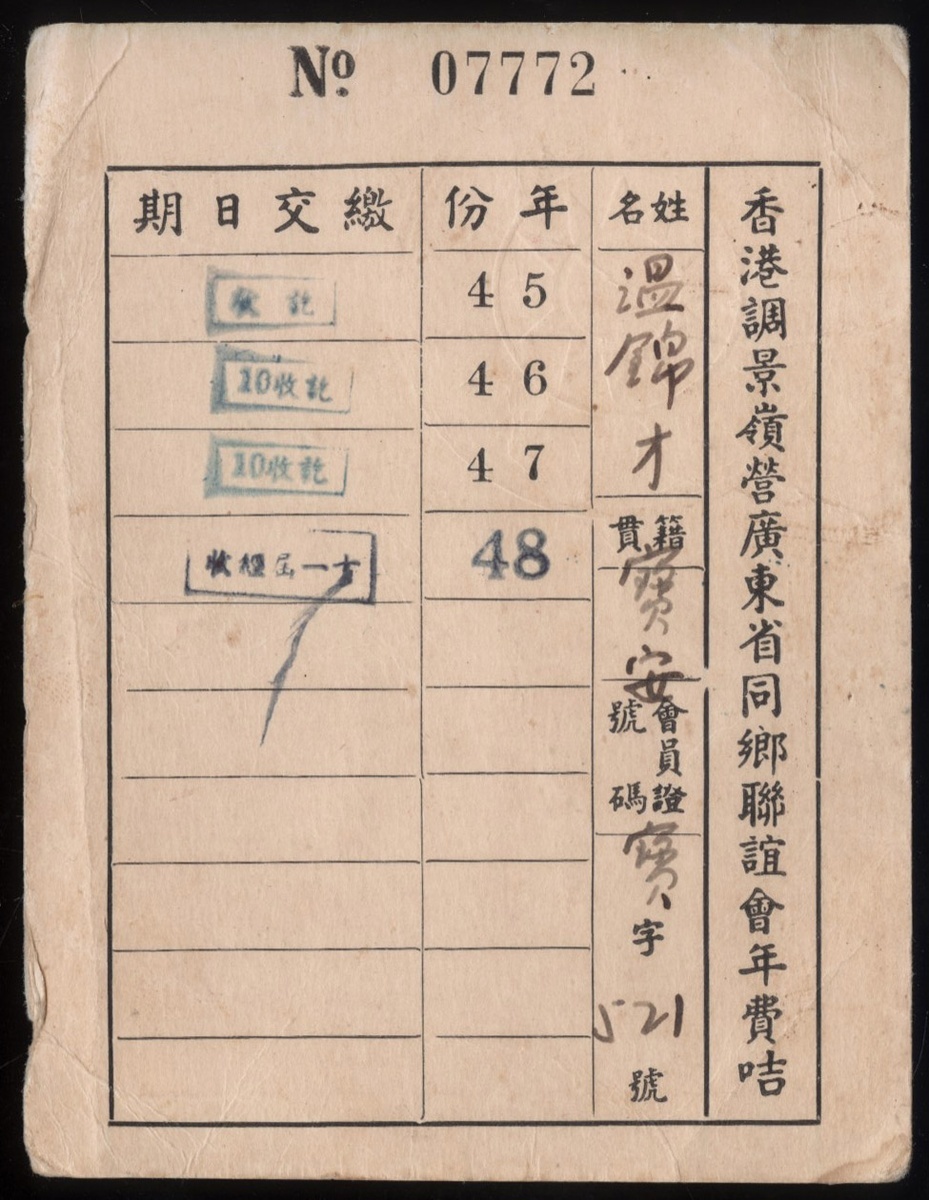 No. 07772
香港調景嶺營廣東省同鄉聯誼會年費咭
姓名
溫錦才
籍貫
寶安
會員證
號碼
寶字521號
年份
45
46
47
48
繳交日期
收訖
10收訖
10收訖
十一屆經收